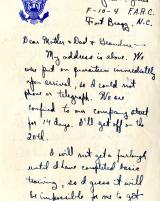 F-10-4 F.A.R.C.
Fort Bragg, N.C.
Dear Mother & Dad & Grandma —
My address is above. We
were put on quarantine immediately
upon arrival, so I could not
phone or telegraph. We are
confined to our company street
for 14 days. I'll get off on the
20th.
I will not get a furlough
until I have completed basic
training, so I guess it will
be impossible for me to get